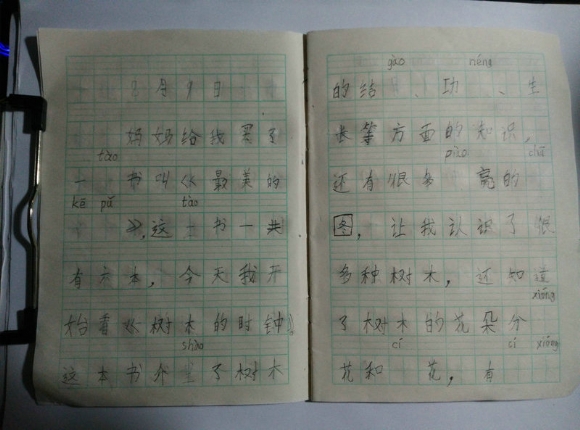 8月9日
妈妈给我买了
tào
一 书叫《最美的
kē pǔ tào
》,这 书一共
有六本,今天我开
始看《树木的时钟》
shào
这本书介 了树木
gòu néng
的结 、功 、生
长等方面的知识,
piào chā
还有很多 亮的
图,让我认识了很
多种树木,还知道
xióng
了树木的花朵分
cí sì xióng
花和 花,有